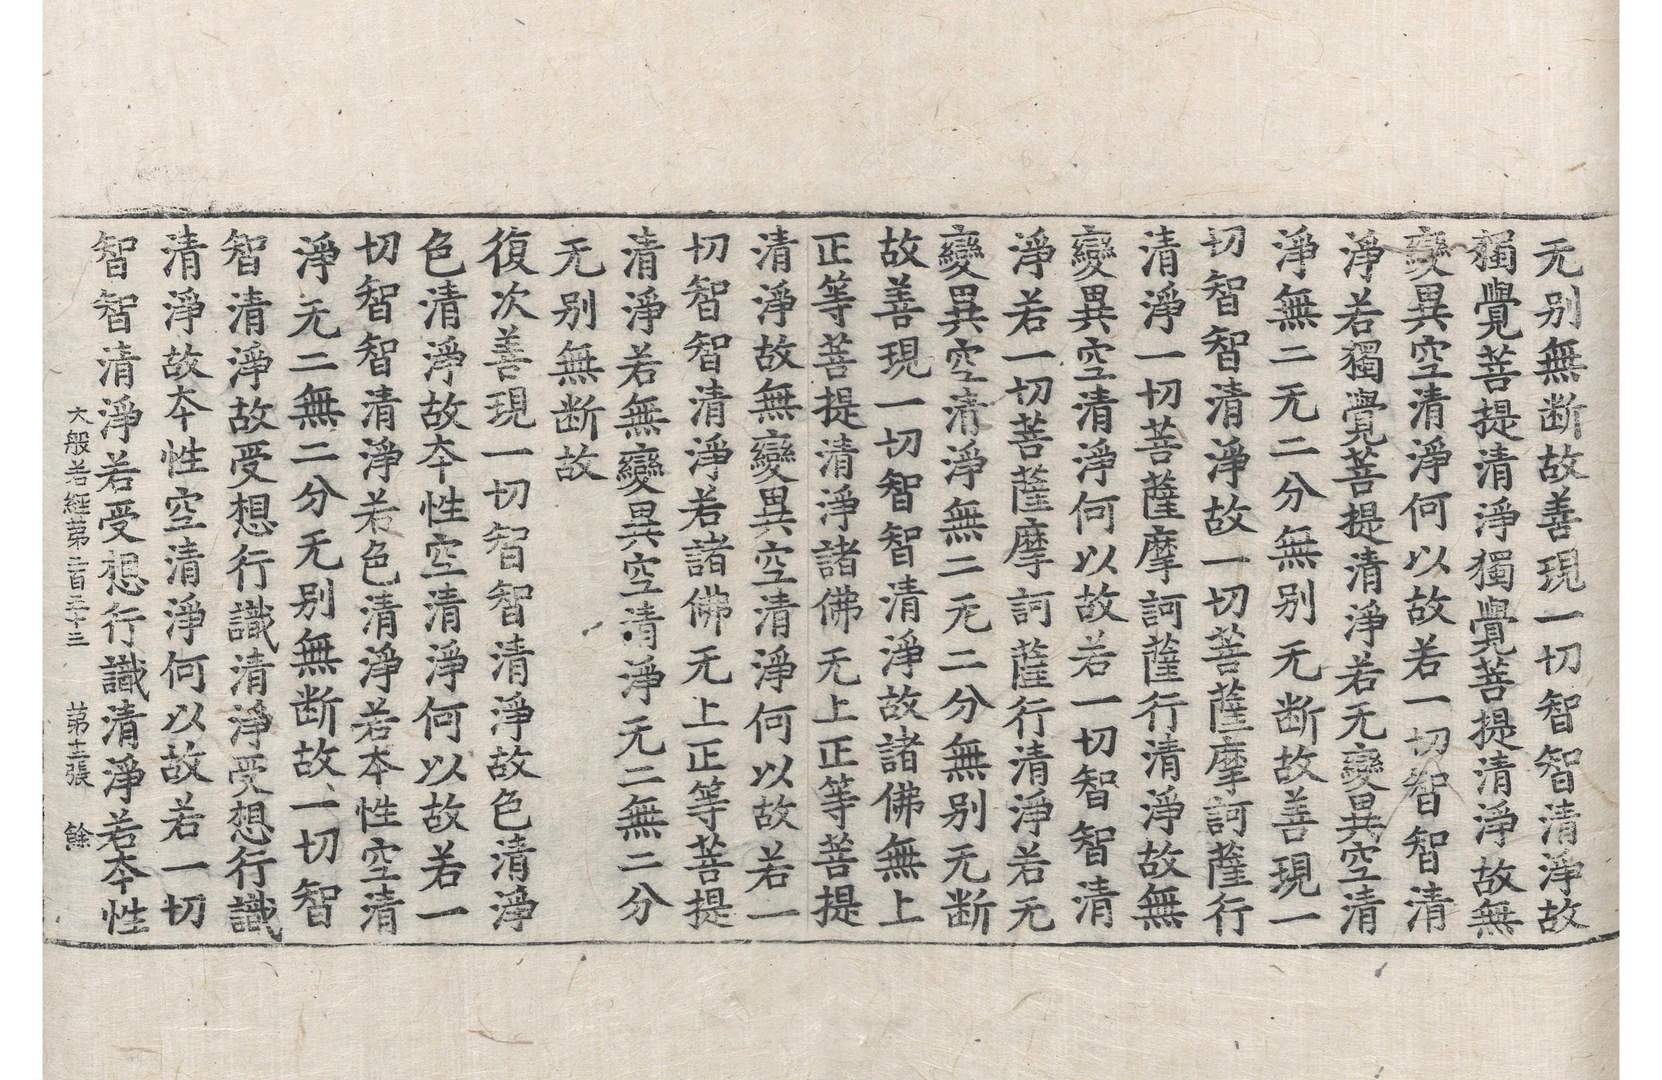 无别無断故善現一切智智清淨故
獨覺菩提清淨獨覺菩提清淨故無
變異空清淨何以故若一切智智清
淨若獨覺菩提清淨若无變異空清
淨無二无二分無别无断故善現一
切智智清淨故一切菩薩摩訶薩行
清淨一切菩薩摩訶薩行清淨故無
變異空清淨何以故若一切智智清
淨若一切菩薩摩訶薩行清淨若无
變異空清淨無二无二分無别无断
故善現一切智智清淨故諸佛無上
正等菩提清淨諸佛无上正等菩提
清淨故無變異空清淨何以故若一
切智智清淨若諸佛无上正等菩提
清淨若無變異空清淨无二無二分
无别無断故
復次善現一切智智清淨故色清淨
色清淨故夲性空清淨何以故若一
切智智清淨若色清淨若夲性空清
淨无二無二分无别無断故一切智
智清淨故受想行識清淨受想行識
清淨故夲性空清淨何以故若一切
智智清淨若受想行識清淨若夲性
大般若經苐二百三十三 苐十三張 餘